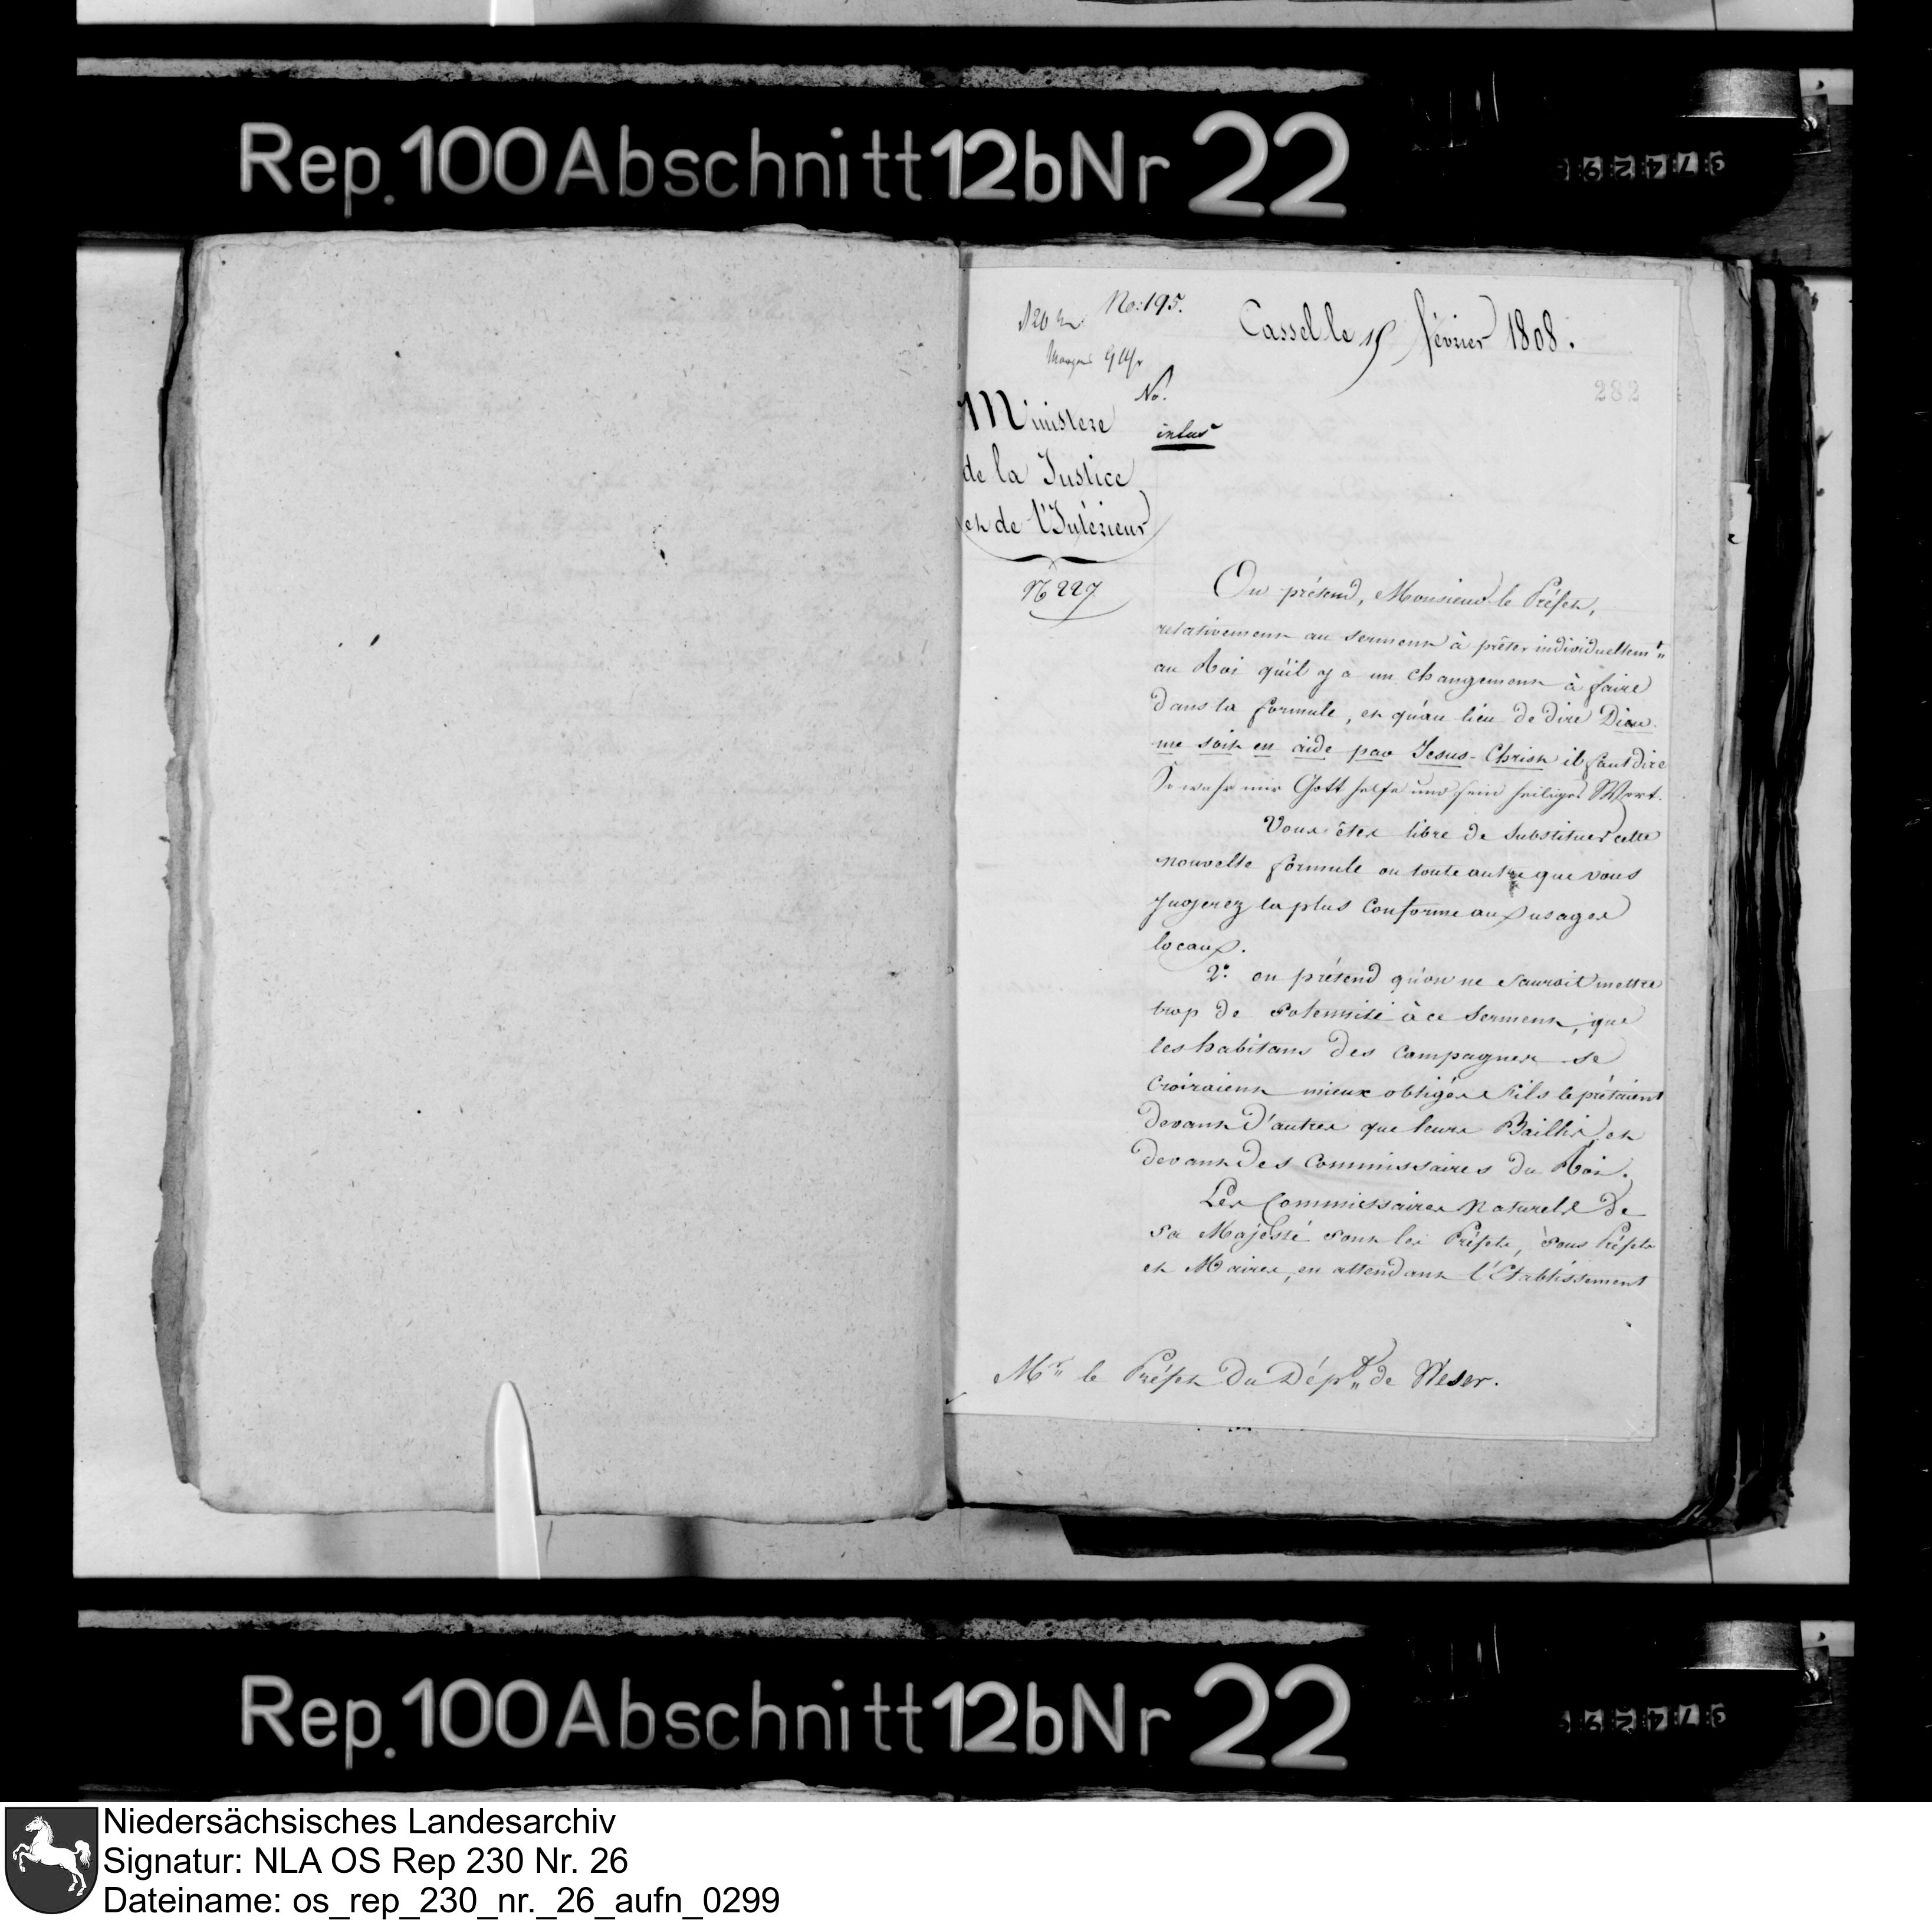 Rep. 100 Abschnitt 12b Nr 22
No: 195.
Cassel le 15 février 1808.
282
No.
Ministere
de la Justice
et de l'Intérieur
No 227
On prétend, Monsieur le Préfet,
relativement au serment à prêter individuellemt
au Roi qu'il y a un changement à faire
dans la formule, et qu'au lieu de dire Dieu
me soit en aide par Jesus-Christ il faut dire
So wahr mir Gott helfe und sein heiliges Wort.
Vous êtes libre de substituer cette
nouvelle formule ou toute autre que vous
jugerez la plus conforme aux usages
locaux.
2o. on prétend qu'on ne sauroit mettre
trop de solennité à ce serment, que
les habitans des campagnes se
croiraient mieux obligés s'ils le prêtaient
devant d'autres que leurs Baillis et
devant des commissaires du Roi.
Les Commissaires naturels de
Sa Majesté sont les Préfets, sous Préfets
et Maires, en attendant l'Etablissement
Mr le Préfet du Dépt de Weser.
Rep. 100 Abschnitt 12b Nr 22
Niedersächsisches Landesarchiv
Signatur: NLA OS Rep 230 Nr. 26
Dateiname: os_rep_230_nr._26_aufn_0299